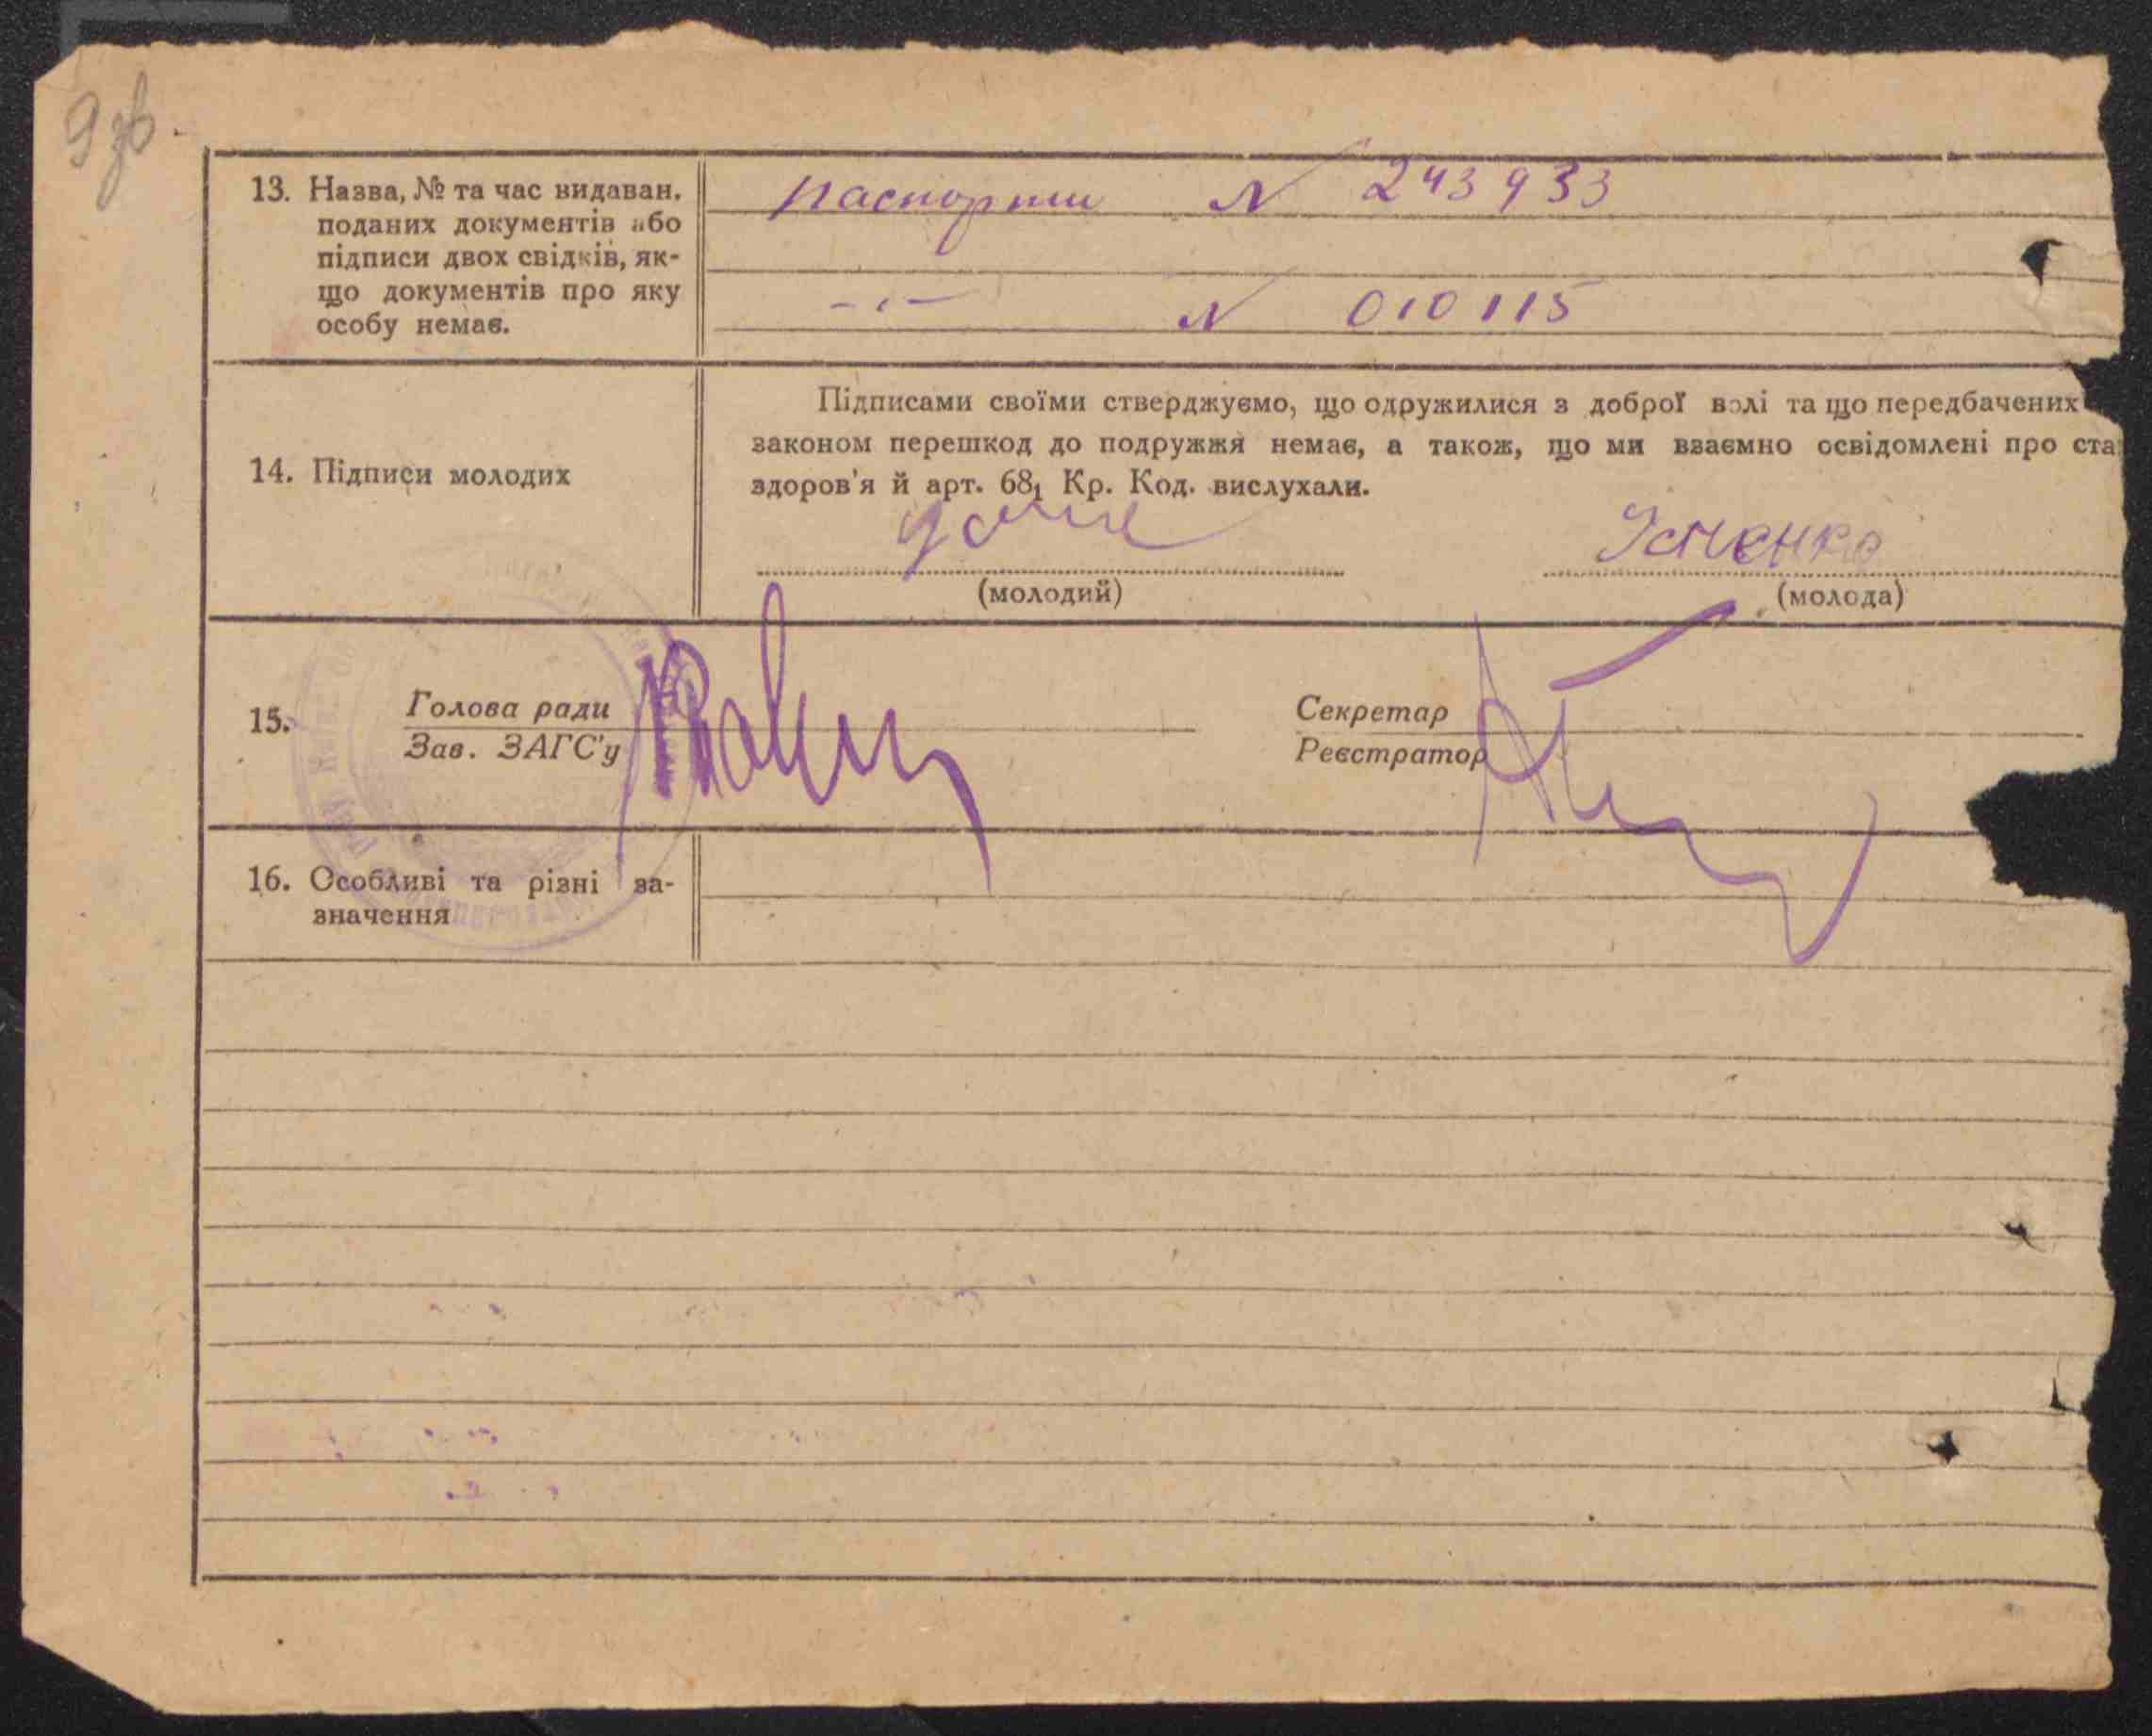 9 зв.
13. Назва, № та час видаван.
поданих документів або
підписи двох свідків, як-
що документів про яку
особу немає.
паспорти N 243933
-"- N 010115
14. Підписи молодих
Підписами своїми стверджуємо, що одружилися з доброї волі та що передбачених
законом перешкод до подружжя немає, а також, що ми взаємно освідомлені про ста
здоров'я й арт. 68₁ Кр. Код. вислухали.
(молодий)
(молода)
15.
Голова ради
Зав. ЗАГС'у
Секретар
Реєстратор
16. Особливі та різні за-
значення